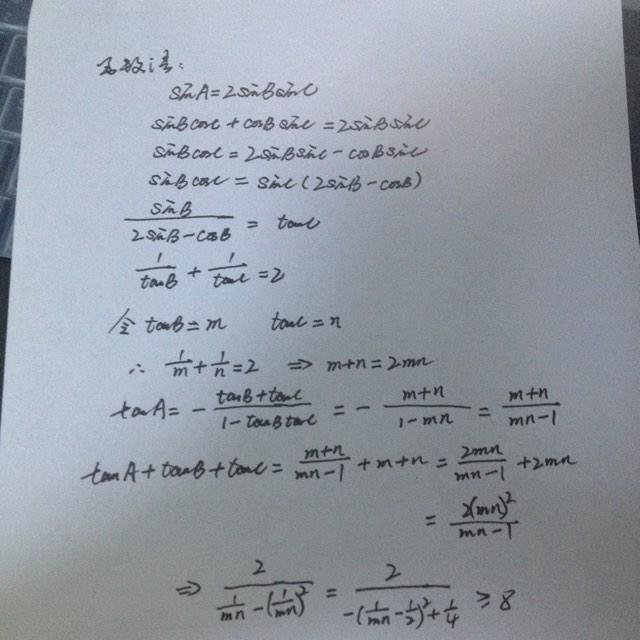 函数法:
sinA=2sinBsinC
sinBcosC+cosBsinC=2sinBsinC
sinBcosC=2sinBsinC-cosBsinC
sinBcosC=sinC(2sinB-cosB)
sinB/(2sinB-cosB) = tanC
1/tanB + 1/tanC = 2
令 tanB=m tanC=n
∴ 1/m+1/n=2 ⇒ m+n=2mn
tanA= - (tanB+tanC)/(1-tanBtanC) = - (m+n)/(1-mn) = (m+n)/(mn-1)
tanA+tanB+tanC = (m+n)/(mn-1) + m+n = 2mn/(mn-1) + 2mn
= 2(mn)²/(mn-1)
⇒ 2/(1/mn-(1/mn)²) = 2/(-(1/mn-1/2)²+1/4) ≥ 8